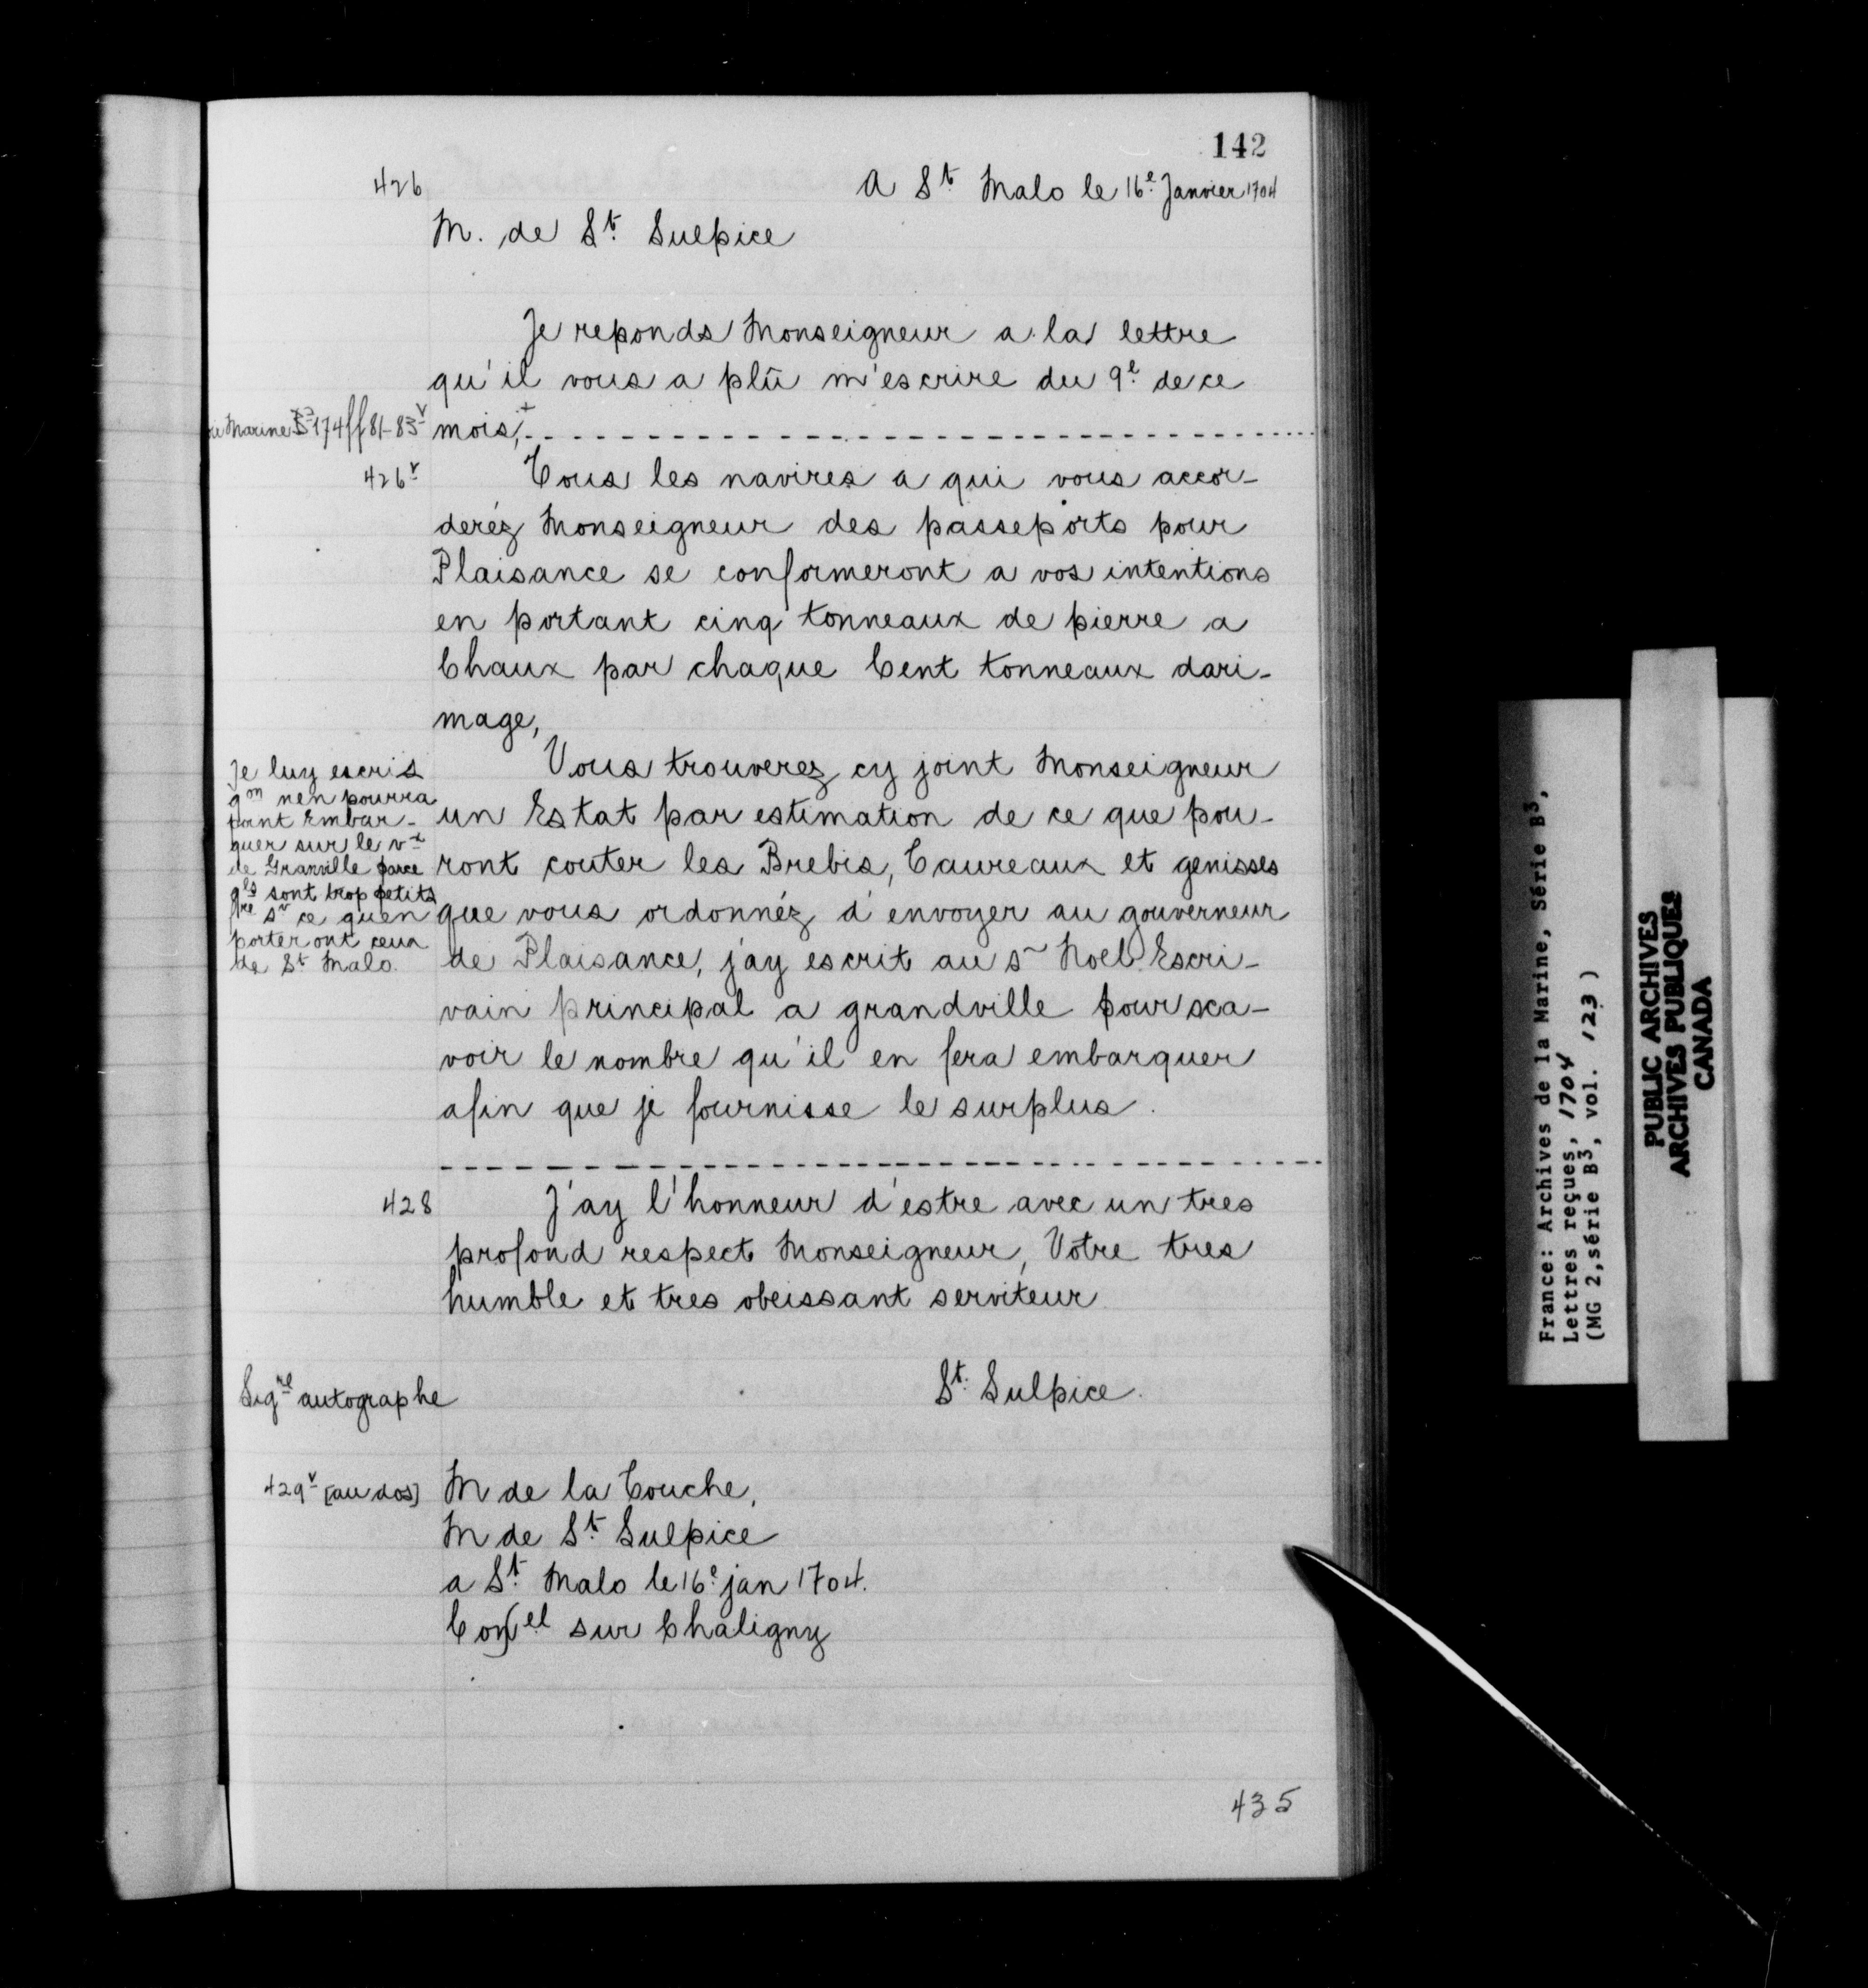 142
426
A St Malo le 16e Janvier 1704
M. de St Sulpice
Je reponds Monseigneur a la lettre
qu'il vous a plû m'escrire du 9e de ce
Marine B2 174 ff 81-83v
mois,+
426v
Tous les navires a qui vous accor-
deréz Monseigneur des passeports pour
Plaisance se conformeront a vos intentions
en portant cinq tonneaux de pierre a
Chaux par chaque Cent tonneaux dari-
mage,
Je luy escris
qon nen pourra
point Embar-
quer sur le vx
de Granville parce
qls sont trop petits
sr ce quen
porteront ceux
de St Malo.
Vous trouverez cy joint Monseigneur
un Estat par estimation de ce que pou-
ront couter les Brebis, Taureaux et genisses
que vous ordonnéz d'envoyer au gouverneur
de Plaisance, j'ay escrit au sr Noel Escri-
vain principal a grandville pour sca-
voir le nombre qu'il en fera embarquer
afin que je fournisse le surplus.
428
J'ay l'honneur d'estre avec un tres
profond respect Monseigneur, Votre tres
humble et tres obeissant serviteur
Signe autographe
St Sulpice.
429v [au dos]
M de la Touche,
M de St Sulpice
a St Malo le 16e jan 1704.
sur Chaligny
435
France: Archives de la Marine, Série B3,
Lettres reçues, 1704
(MG 2, série B3, vol. 123)
PUBLIC ARCHIVES
ARCHIVES PUBLIQUES
CANADA